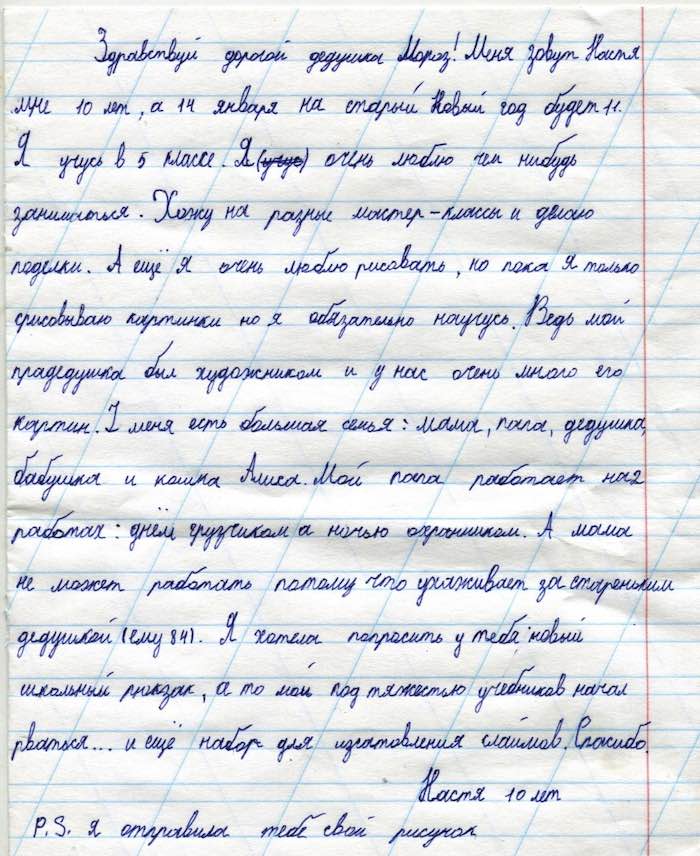 Здравствуй дорогой дедушка Мороз! Меня зовут Настя
мне 10 лет, а 14 января на старый Новый год будет 11.
Я учусь в 5 классе. Я (учус) очень люблю чем нибудь
заниматься. Хожу на разные мастер-классы и делаю
поделки. А ещё я очень люблю рисовать, но пока я только
срисовываю картинки но я обязательно научусь. Ведь мой
прадедушка был художником и у нас очень много его
картин. У меня есть большая семья: мама, папа, дедушка,
бабушка и кошка Алиса. Мой папа работает на 2
работах: днём грузчиком а ночью охранником. А мама
не может работать потому что ухаживает за стареньким
дедушкой (ему 84). Я хотела попросить у тебя новый
школьный рюкзак, а то мой под тяжестью учебников начал
рваться... и ещё набор для изготовления слаймов. Спасибо.
Настя 10 лет
P.S. я отправила тебе свой рисунок